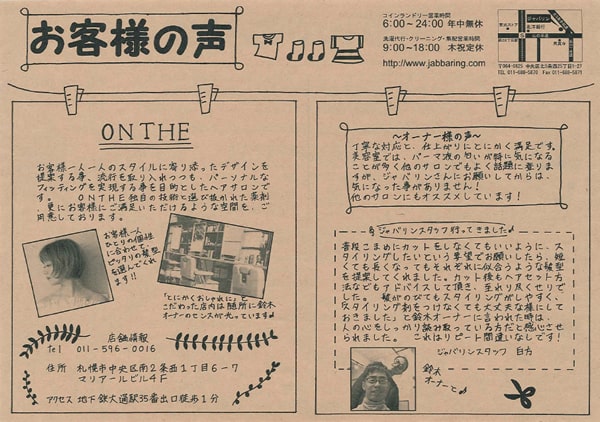 お客様の声
コインランドリー営業時間
6:00～24:00 年中無休
洗濯代行・クリーニング・集配営業時間
9:00～18:00 木祝定休
http://www.jabbaring.com
ジャバリン
〒064-0825 中央区北5条西25丁目1-27
ON THE
お客様一人一人のスタイルに寄り添ったデザインを
提案する事、流行を取り入れつつも、パーソナルな
フィッティングを実現する事を目的としたヘアサロンです。
ON THE独自の技術と選び抜かれた薬剤
更にお客様にご満足いただけるような空間を、ご
用意しております。
お客様一人
ひとりの個性
に合わせて、
ピッタリの髪型
を選んでくれ
ます!!
「とにかくおしゃれに」と
こだわった店内は随所に鈴木
オーナーのセンスが光っています♪
店舗情報
Tel 011-596-0016
住所 札幌市中央区南2条西1丁目6-7
マリアールビル4F
アクセス 地下鉄大通駅35番出口徒歩1分
～オーナー様の声～
丁寧な対応と、仕上がりにとにかく満足です。
美容室では、パーマ液の匂いが特に気になる
ことが多く他のサロンでもよく話題に登りま
すが、ジャバリンさんにお願いしてからは、
気になった事がありません!
他のサロンにもオススメしています!
ジャバリンスタッフ行ってきました♪
普段こまめにカットをしなくてもいいように、ス
タイリングしたいという要望でお願いしたら、短
くても長くなってもそれぞれに似合うような髪型
を提案してくれました。カット後もヘアセット方
法などもアドバイスして頂き、至れり尽くせりで
した。 髪がのびてもスタイリングがしやすく、
スタイリング剤をつけなくても大丈夫な様にして
おきました」と鈴木オーナーに言われた時は、
人の心をしっかり読み取っている方だと感心させ
られました。 これはリピート間違いなしです!
ジャバリンスタッフ 日方
鈴木
オーナーと♪